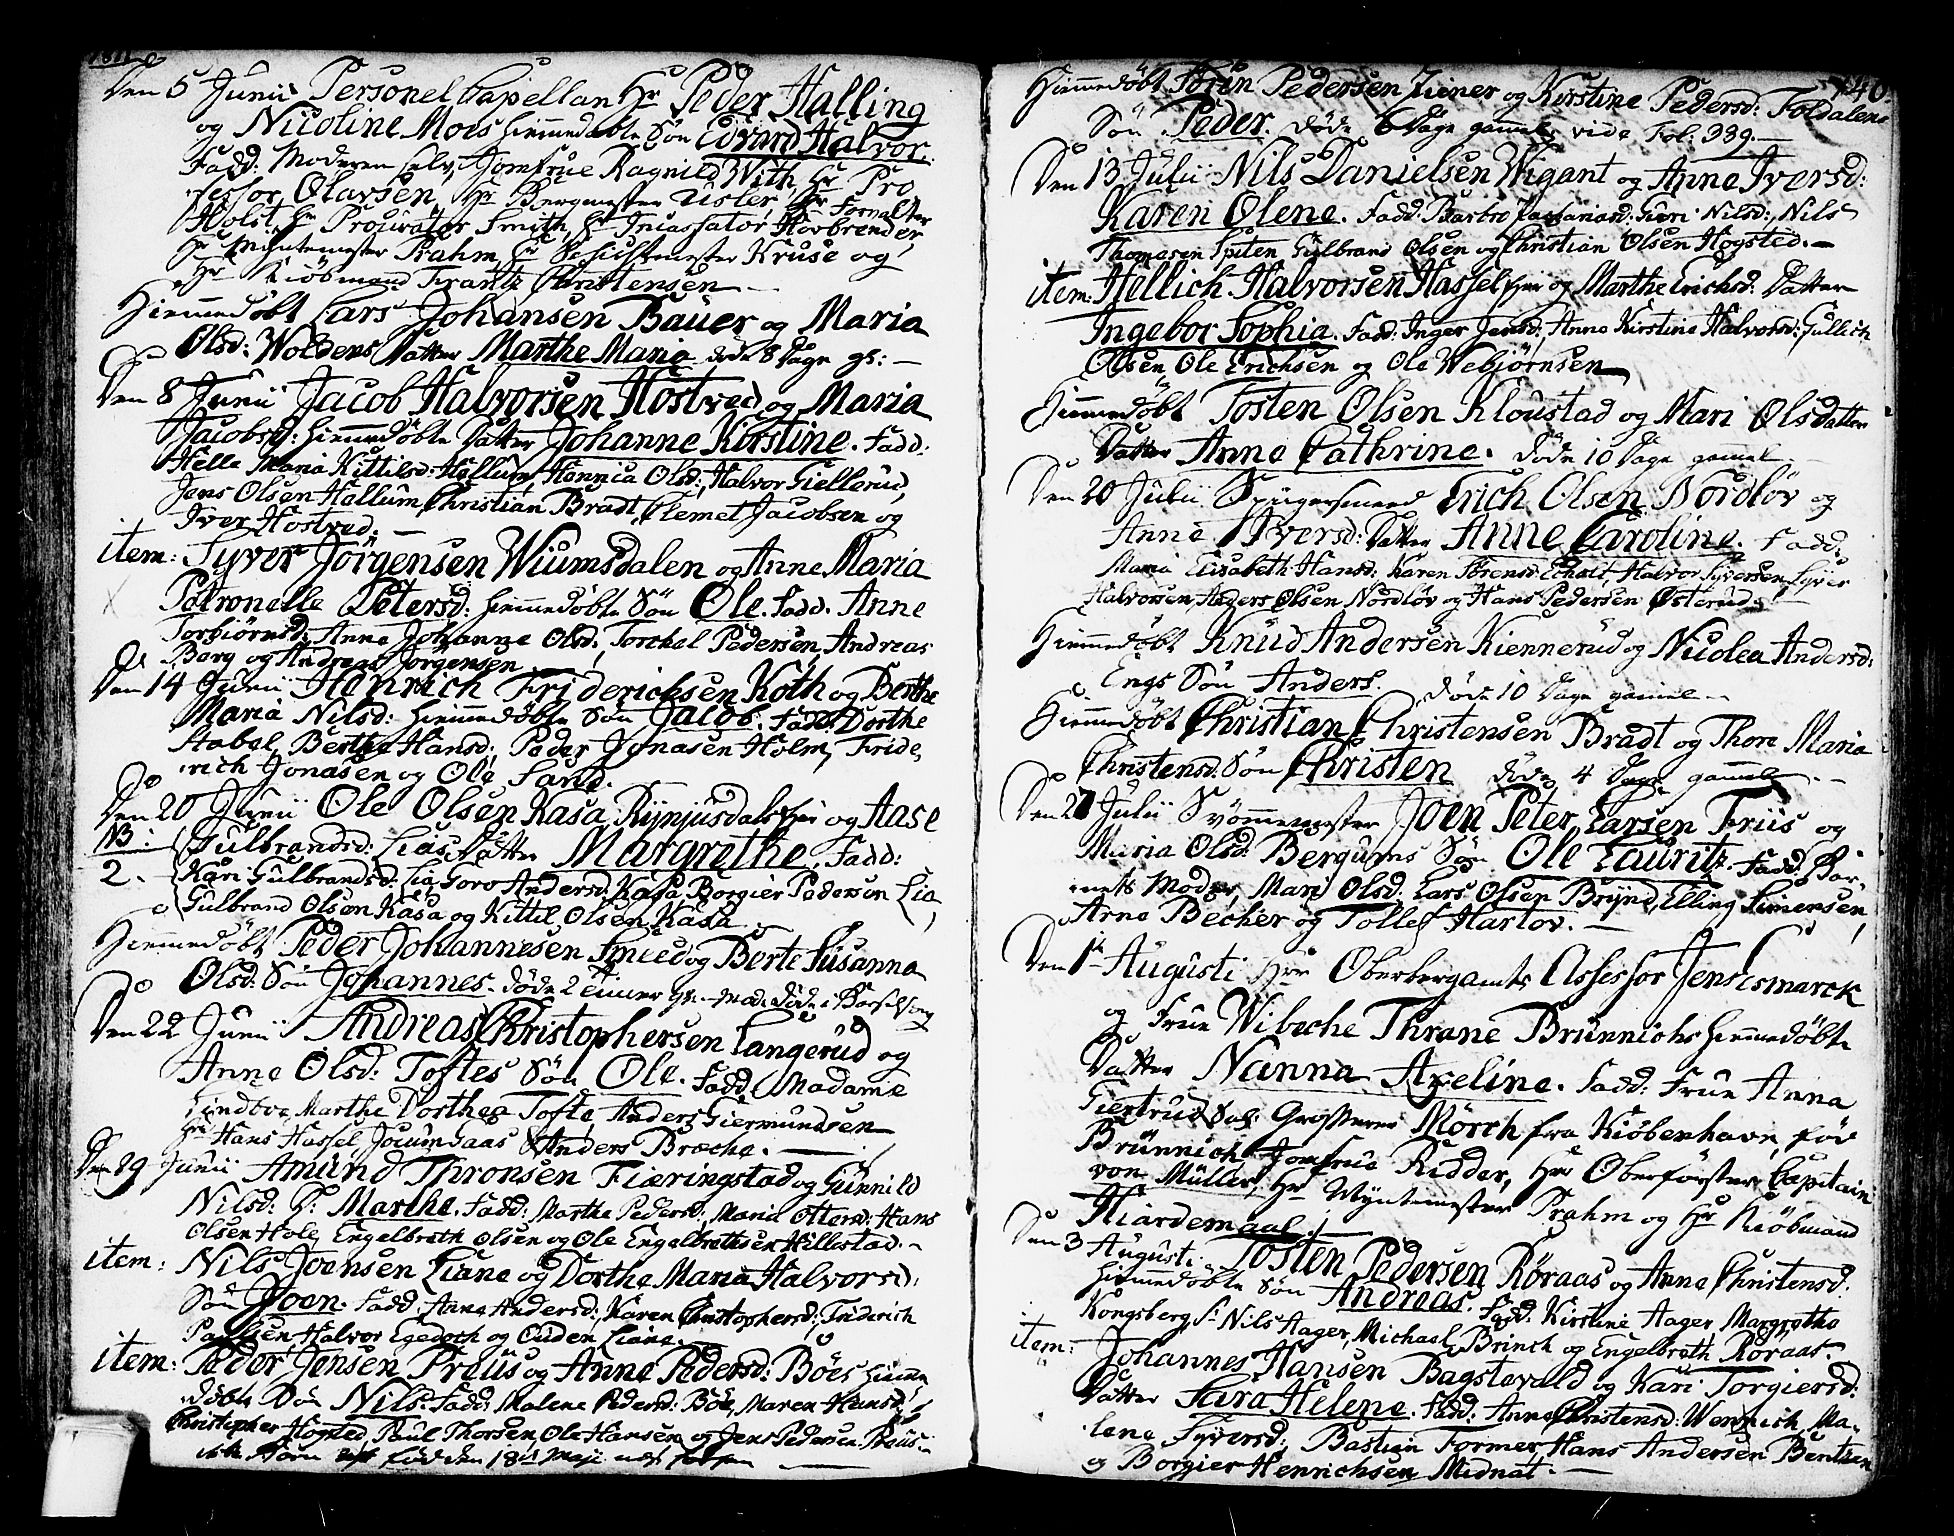 Den 5 Junii Personel Capellan Hr Peder Halling
og Nicoline Moes hiemmedøbte Søn Edvard Halvor.
Fadd: Moderen selv, Jomfrue Ragnild With, Hr Pro
fessor Olavsen, Hr Bergmester Lister, Hr Forvalter
Holst, Hr Procurator Smith, Hr Incassator Hövbrender,
Hr Myntemester Prahm, Hr Schichtmester Kruse og
Hr Kiöbmand Frantz Christensen.
Hiemmedøbt Lars Johansen Bauer og Maria
Olsd: Woldens Datter Marthe Maria døde 8 Dage gl: —
Den 8 Junii Jacob Halvorsen Hostved og Maria
Jacobsd: hiemmedøbte Datter Johanne Kirstine. Fadd:
Helle Maria Kittilsd: Hallum, Hannica Olsd:, Halvor Giellerud,
Jens Olsen Hallum, Christian Bradt, Clemet Jacobsen og
Iver Hostved. —
item: Syver Jörgensen Wiumsdalen og Anne Maria
Petronelle Petersd: hiemmedøbte Søn Ole. Fadd: Anne
Torbiörnsd:, Anne Johanne Olsd:, Torchel Pedersen, Andreas
Berg og Andreas Jörgensen
Den 14 Junii Henrich Friderichsen Koth og Berthe
Maria Nilsd: hiemmedøbte Søn Jacob. Fadd: Dorthe
Stabel, Berthe Hansd:, Peder Jonasen Holm, Fride
rich Jonasen og Ole Sand.
Den 20 Junii Ole Olsen Kasa, Rijnjusdals og Aase
NB: Gulbrandsd: Lias Datter Margrethe. Fadd:
2. Kari Gulbrandsd: Lia, Goro Andersd: Kasa, Borgier Pedersen Lia,
Gulbrand Olsen Kasa og Kittil Olsen Kasa.
Hiemmedøbt Peder Johannesen Smed og Berte Susanna
Olsd: Søn Johannes. døde 2 Timer gl: — Mod: døde i Barselseng
Den 22 Junii Andreas Christophersen Langerud og
Anne Olsd: Toftes Søn Ole. Fadd: Madame
Lindboe, Marthe Dorthea Tofte, Anders Giermundsen
Hr Hans Hassel, Jocum Saas & Anders Broche. —
Den 29 Junii Amund Thronsen Fieringstad og Gunnild
Nilsd: D: Marthe. Fadd: Marthe Pedersd:, Maril Ottersd: Hans
Olsen Hole, Engelbreth Olsen og Ole Engelbrethsen Hillestad. —
item: Nils Joensen Liane og Dorthe Maria Halvorsd:
Søn Joen. Fadd: Anne Andersd:, Karen Christophersd:, Friderich
Paulsen, Halvor Egedoch og Ouden Liane.
item: Peder Jensen Preus og Anne Pedersd: Böes hiemme
døbte Søn Nils. Fadd: Malene Pedersd: Böe, Maren Hansd:
Christopher Hogsted, Paul Thorsen, Ole Hansen og Jens Pedersen Preus.
født den 18de Maji
140.
Hiemmedøbt Sören Pedersen Ziener og Kirstine Pedersd: Foldalens
Søn Peder. døde 6 Dage gammel, vide Fol: 339. —
Den 13 Julii Nils Danielsen Wigant og Anne Iversd:
Karen Olene. Fadd: Barbro Zachariasd: Siöri Nilsd:, Nils
Thomesen Spiten, Gulbrand Olsen og Christian Olsen Hogsted. —
item: Hellich Halvorsen Hassel og Marthe Erichsd: Datter
Ingebor Sophia. Fadd: Inger Jensd:, Anne Kirstine Halvorsd: Gullich
Olsen, Ole Erichsen og Ole Webjörnsen
Hiemmedøbt Tosten Olsen Kloustad og Mari Olsdatter
Datter Anne Cathrine. døde 10 Dage gammel
Den 20 Julii Spigersmed Erich Olsen Nordlöv og
Anne Iversd: Datter Anne Caroline. Fadd:
Maria Elisabeth Hansd: Karen Sörensd: Echolt, Halvor Syversen, Syver
Halvorsen, Anders Olsen Nordlöv og Hans Pedersen Østerud. —
Hiemmedøbt Knud Andersen Kiennerud og Nicolea Andersd:
Engs Søn Anders. døde 10 Dage gammel —
Hiemmedøbt Christian Christensen Bradt og Thore Maria
Christensd: Søn Christen døde 4 Dage gammel —
Den 27 Julii Svömmemester Joen Peter Larsen Friis og
Maria Olsd: Bergums Søn Ole Lauritz. Fadd: Bar-
nets Moder, Mari Olsd:, Lars Olsen Brynd, Elling Simensen,
Arne Becher og Tollef Hartov. —
Den 1te Augusti Hr Oberbergamts Assessor Jens Esmarck
og Frue Wibeche Thrane Brünnichs hiemmedøbte
Datter Nanna Aveline. Fadd: Frue Anna
Giertrud Sal: Grosserer Mörch fra Kiöbenhavn, föd
Brünnich, Jomfrue Ridder, Hr Oberförster Capitain
von Müller, Hr Myntemester Prahm og Hr Kiöbmand
Hiardemaal. —
Den 3 Augusti Tosten Pedersen Röraas og Anne Christensd:
hiemmedøbte Søn Andreas. Fadd: Kirstine Aager, Margrethe
Kongsberg, Nils Aager, Michael Brinck og Engelbreth Röraas.
item: Johannes Hansen Bagstevald og Kari Torgiersd:
Datter Sara Helene. Fadd: Anne Christensd: Wennich, Ma-
lene Syversd: Bastian Former, Hans Andersen Bentzen
og Borgier Henrichsen Midnat. —